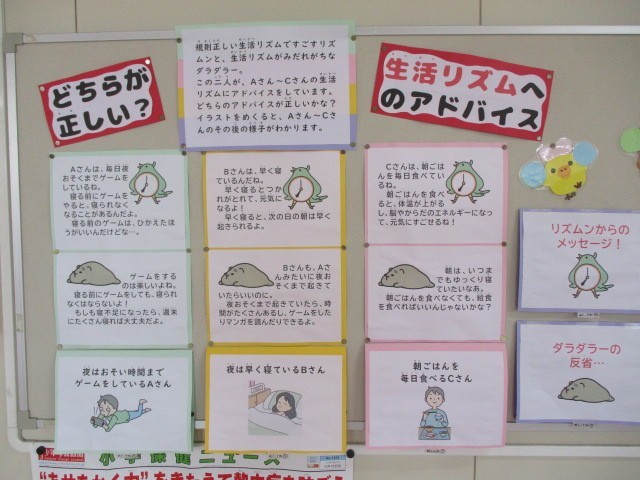 どちらが
正しい？
規則正しい生活リズムですごすリ
ズムンと、生活リズムがみだれがちな
ダラダラー。
この二人が、Aさん～Cさんの生活
リズムにアドバイスをしています。
どちらのアドバイスが正しいかな？
イラストをめくると、Aさん～Cさ
んのその後の様子がわかります。
生活リズムへ
のアドバイス
Aさんは、毎日夜
おそくまでゲームを
しているね。
寝る前にゲームを
やると、寝られなく
なることがあるんだよ。
寝る前のゲームは、ひかえたほ
うがいいんだけどな…
ゲームをする
のは楽しいよね。
寝る前にゲームをしても、寝られ
なくはならないよ！
もしも寝不足になったら、週末
にたくさん寝れば大丈夫だよ。
夜はおそい時間まで
ゲームをしているAさん
Bさんは、早く寝
ているんだね。
早く寝るとつか
れがとれて、元気に
なるよ！
早く寝ると、次の日の朝は早く
起きられるよ。
Bさんも、Aさ
んみたいに夜お
そくまで起きて
いたらいいのに。
夜おそくまで起きていたら、時
間がたくさんあるし、ゲームをした
りマンガを読んだりできるよ。
夜は早く寝ているBさん
Cさんは、朝ごは
んを毎日食べてい
るね。
朝ごはんを食べ
ると、体温が上がる
し、脳やからだのエネルギーになっ
て、元気にすごせるね！
朝は、いつま
でもゆっくり寝
ていたいなあ。
朝ごはんを食べなくても、給食
を食べればいいんじゃないかな？
朝ごはんを
毎日食べるCさん
リズムンからの
メッセージ！
ダラダラーの
反省…
小学保健ニュース